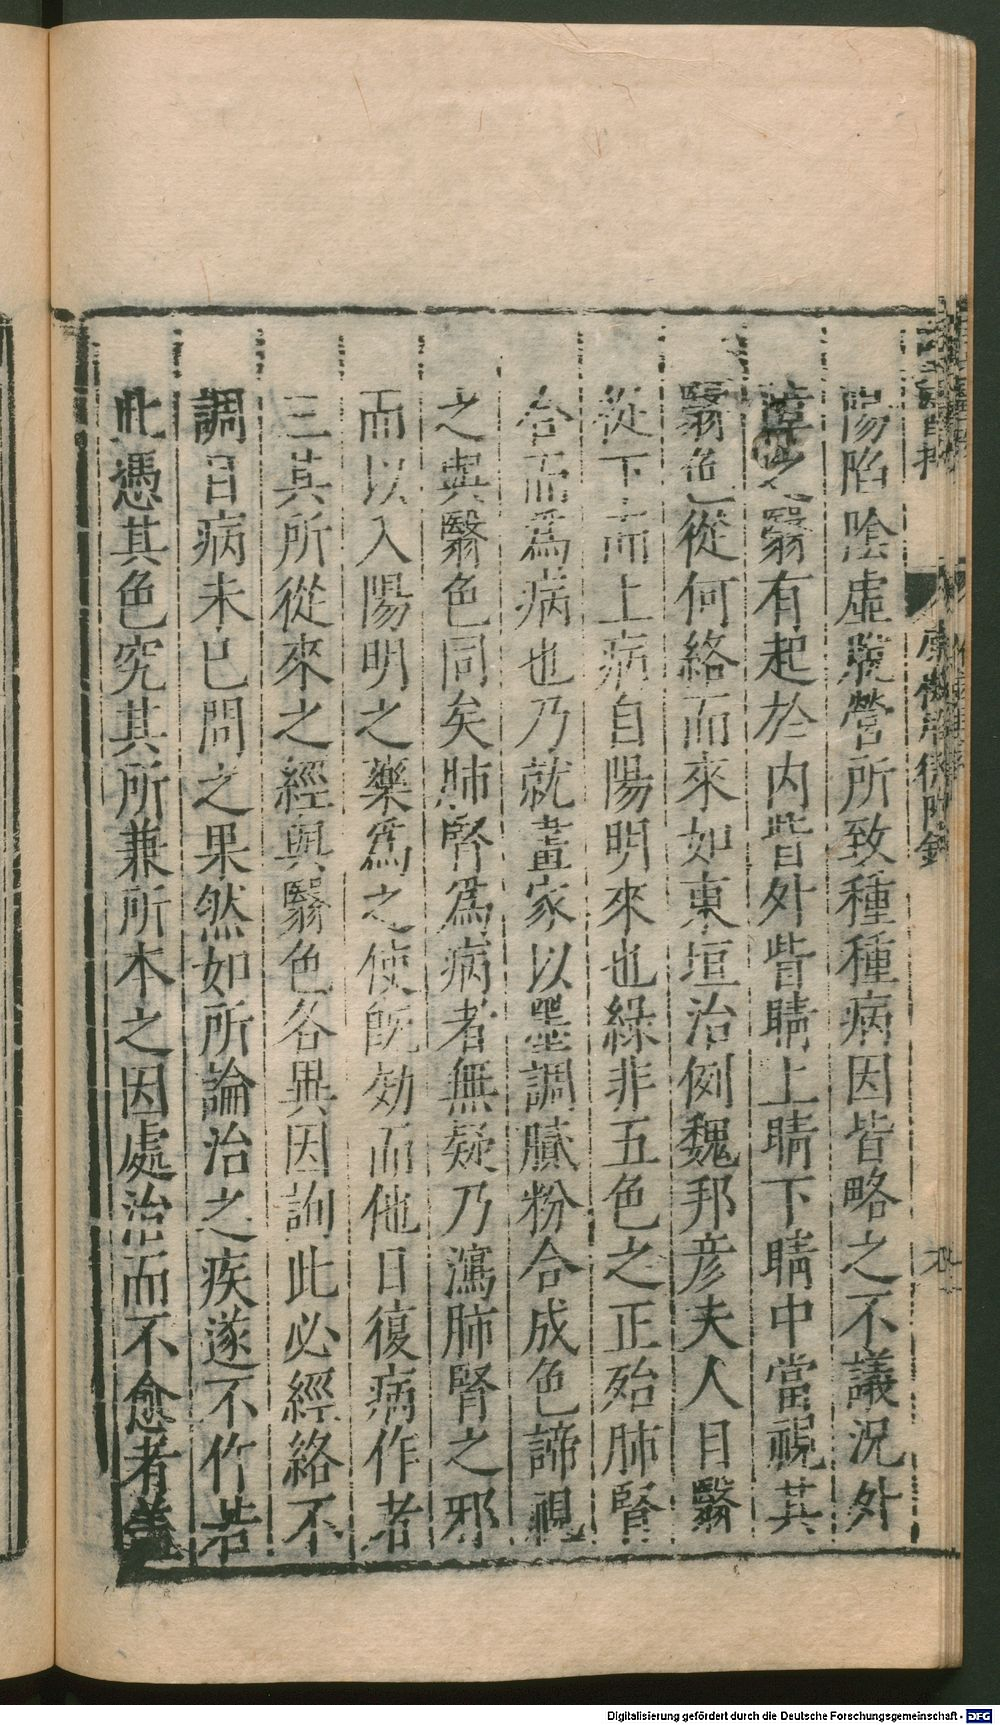 陽陷陰虛脫營所致種種病因皆略之不議況外
障之翳有起於內眥外眥睛上睛下睛中當視其
翳色從何絡而來如東垣治例魏邦彥夫人目翳
從下而上病自陽明來也綠非五色之正殆肺腎
合而為病也乃就畫家以墨調膩粉合成色諦視
之與翳色同矣肺腎為病者無疑乃瀉肺腎之邪
而以入陽明之藥為之使既効而他日復病作者
三其所從來之經與翳色各異因詢此必經絡不
調目病未已問之果然如所論治之疾遂不作若
此憑其色究其所兼所本之因處治而不愈者蓋
Digitalisierung gefördert durch die Deutsche Forschungsgemeinschaft - DFG